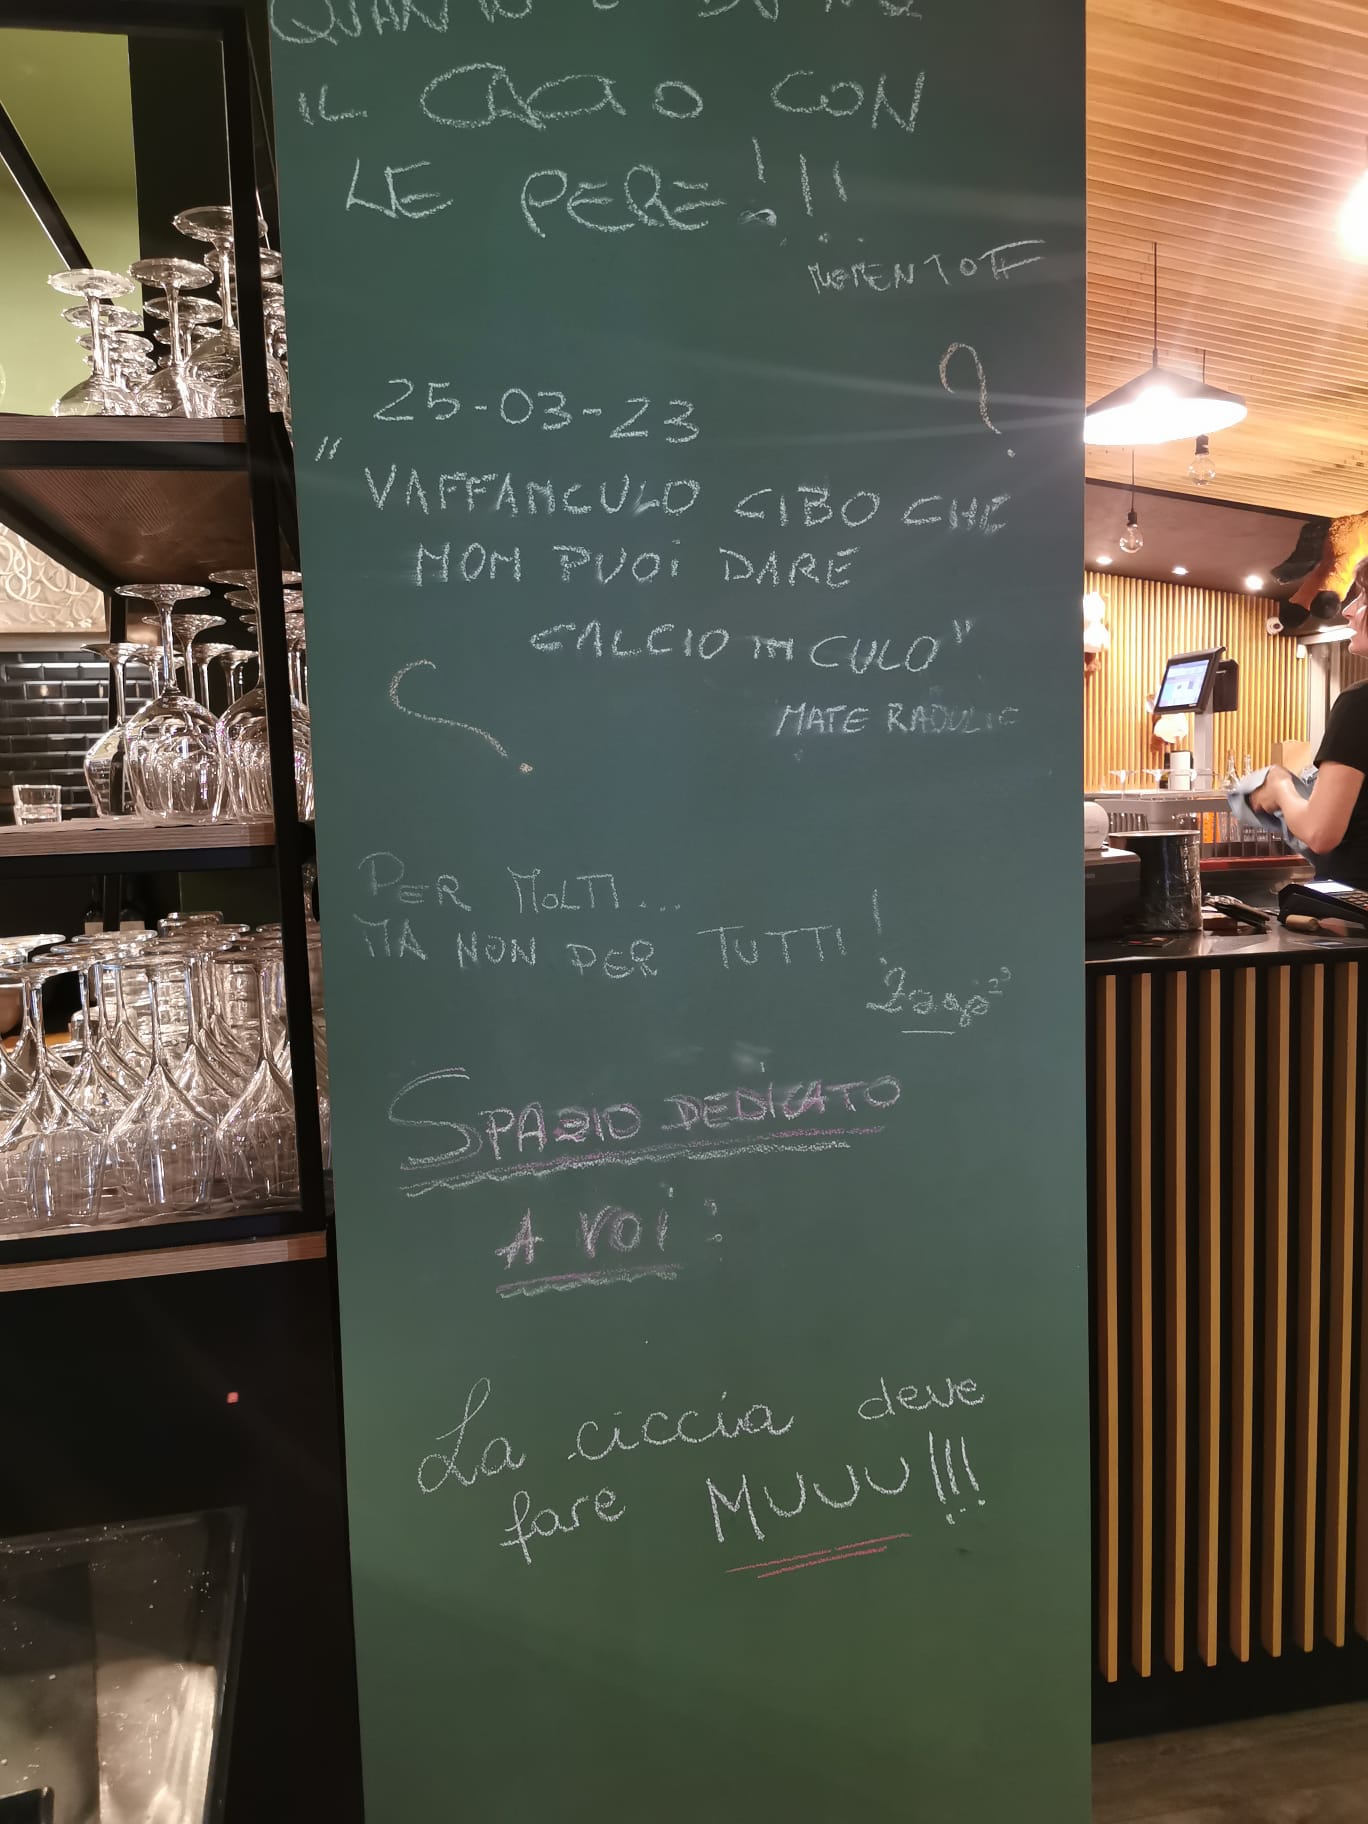 QUANTO È BUONO
IL CACIO CON
LE PERE!!!
MOMENTOFF
?
25-03-23
"VAFFANCULO CIBO CHE
NON PUOI DARE
CALCIO IN CULO"
MATE RADULIC
PER MOLTI...
MA NON PER TUTTI!
Zago
SPAZIO DEDICATO
A VOI:
La ciccia deve
fare MUUU!!!